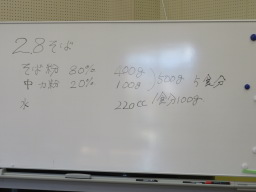 28そば
そば粉 80% 400g
中力粉 20% 100g 500g 5食分
水 220cc 1食分100g